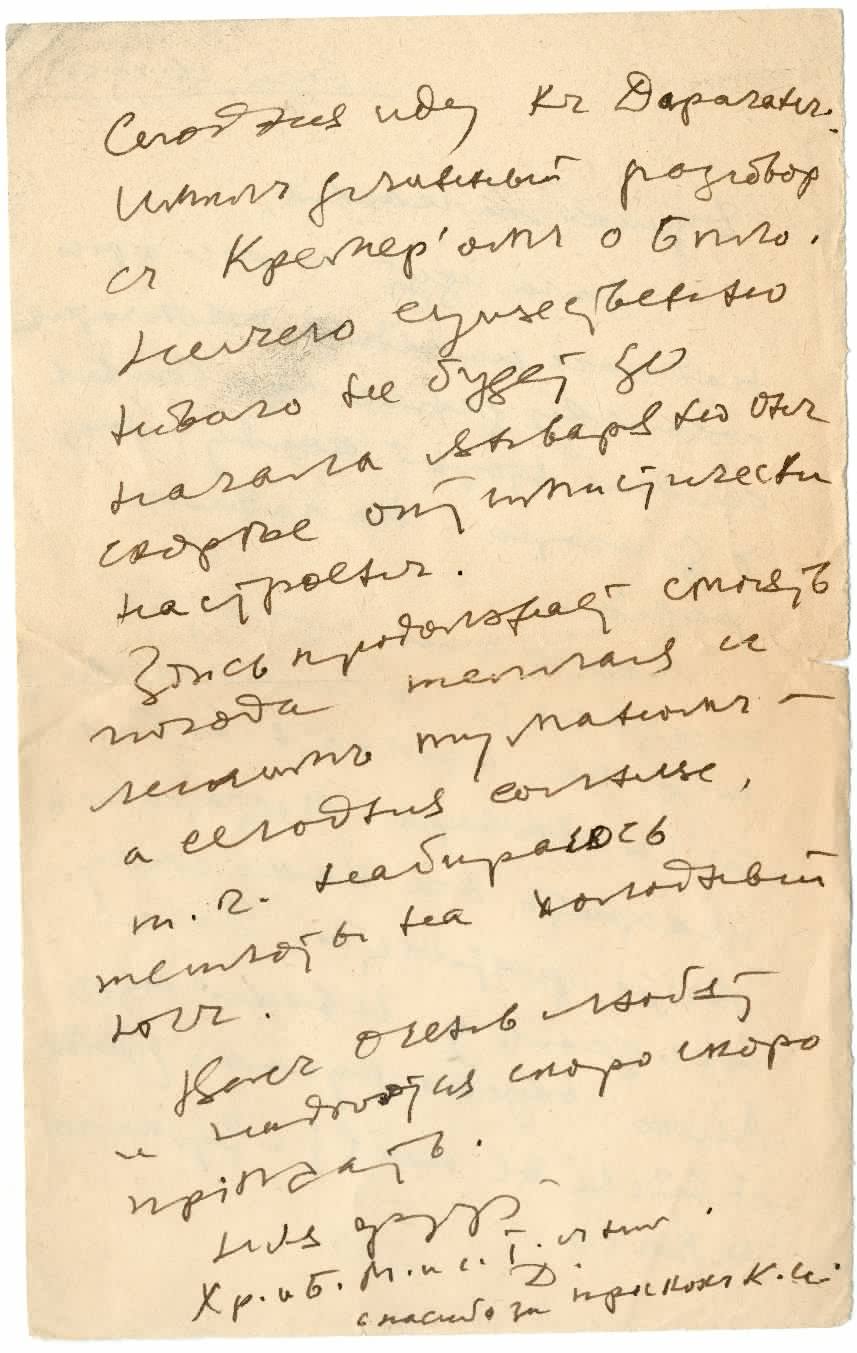 Сегодня иду къ Дарагант.
Имѣлъ длинный разговоръ
съ Кремер'омъ о Било.
Ничего существенно
новаго не будетъ до
начала января но онъ
скорѣе оптимистически
настроенъ.
Здѣсь продолжаетъ стоять
погода теплая и
туманомъ —
а сегодня солнце,
т. ч. набираюсь
теплоты на холодный
югъ.
Васъ очень любятъ
и надѣются скоро скоро
пріѣхать.
Хр. и Б. М. и с.
спасибо за К. И.